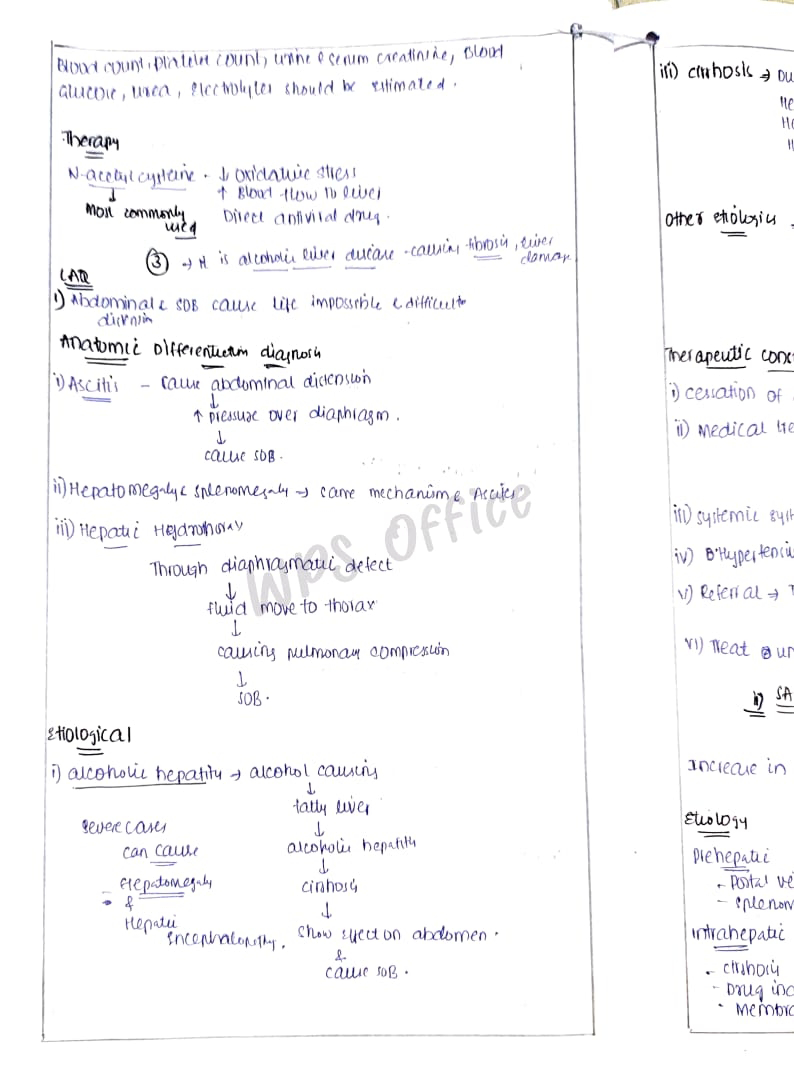 Blood count, platelet count, urine & serum creatinine, Blood
Glucose, urea, electrolytes should be estimated.
Therapy
N-acetyl cysteine - ↓ oxidative stress
↑ Blood flow to liver
Most commonly
used
Direct antiviral drug.
③ → It is alcoholic liver disease - causing fibrosis, liver
LAQ
i) Abdominal & SOB cause life impossible & difficult to
Anatomic Differentiation diagnosis
i) Ascitis - cause abdominal distension
↓
↑ pressure over diaphragm.
↓
cause SOB.
ii) Hepatomegaly & splenomegaly → same mechanism & Ascites
iii) Hepatic Hydrothorax
Through diaphragmatic defect
↓
fluid move to thorax
↓
causing pulmonary compression
↓
SOB.
WPS Office
Etiological
i) alcoholic hepatitis → alcohol causing
↓
fatty liver
↓
alcoholic hepatitis
↓
cirrhosis
↓
Show effect on abdomen.
&
cause SOB.
severe cases
can cause
- Hepatomegaly
&
Hepatic
Encephalopathy.
iii) cirrhosis →
Other etiologies
Therapeutic
i) cessation of
ii) Medical
iii) systemic
iv)
v) Referral →
vi) Treat
Increase in
Etiology
Prehepatic
- Portal
-
intrahepatic
- cirrhosis
- Drug
-